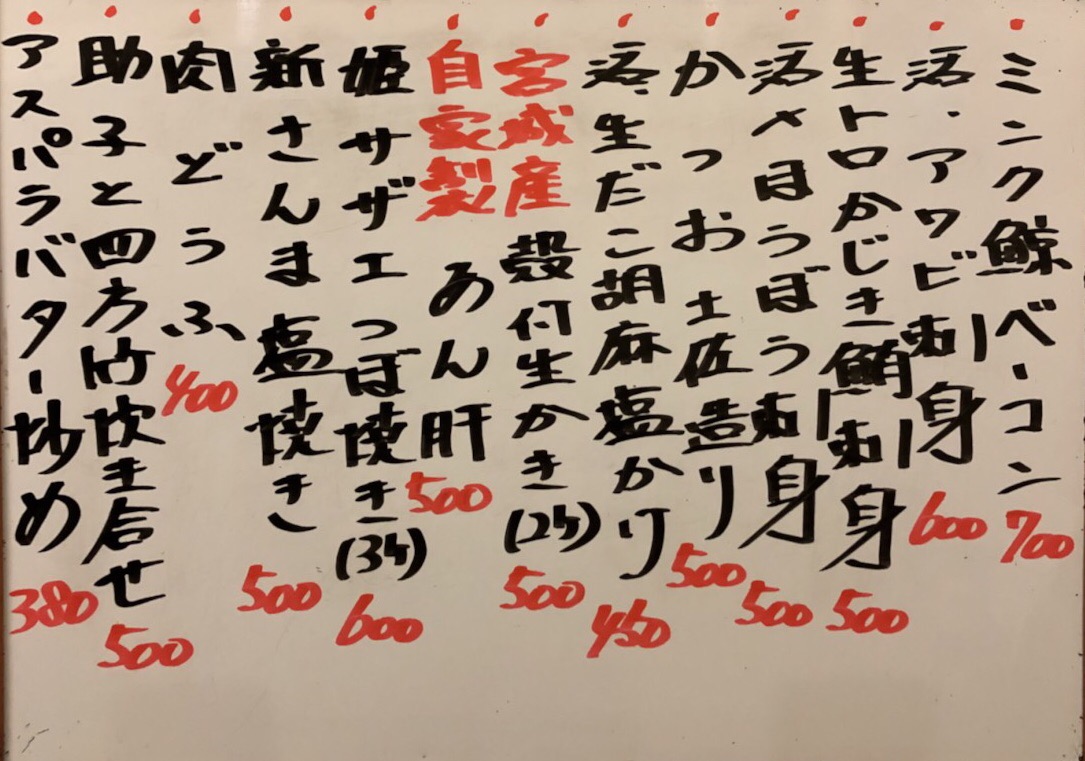 ミンク鯨ベーコン 700
活・アワビ刺身 600
生トロかじき鮪刺身 500
活〆ほうぼう刺身 500
かつお土佐造り 500
活・生だこ胡麻塩かり 450
宮城産 殻付生かき(2ケ) 500
自家製 あん肝 500
姫サザエつぼ焼き(3ケ) 600
新さんま塩焼き 500
肉どうふ 400
助子と四方竹炊き合せ 500
アスパラバター炒め 380